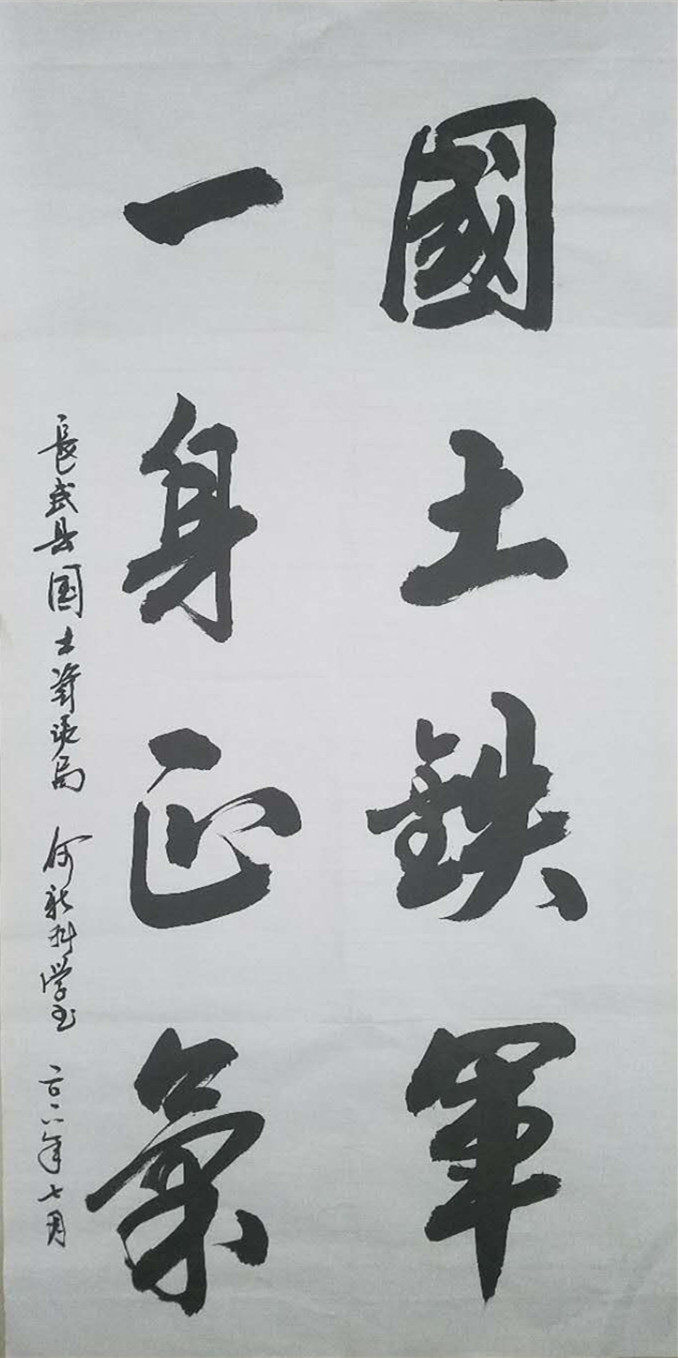 國土鉄軍
一身正氣
長武县国土資源局 何新科学书 二〇一八年七月